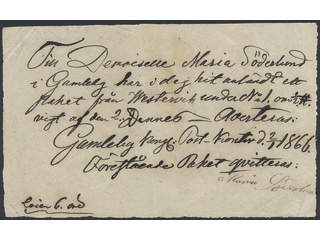 Till Demoiselle Maria Söderlund
i Gamleby har i dag hit anländt ett
Paket från Westervik under N:o 1, om
vigt af den 2 Dennes Averteras.
Gamleby Kongl. Post-Kontor d. 2/7 1866.
Förestående Paket qvitteras:
Maria
Lösen 6. öre